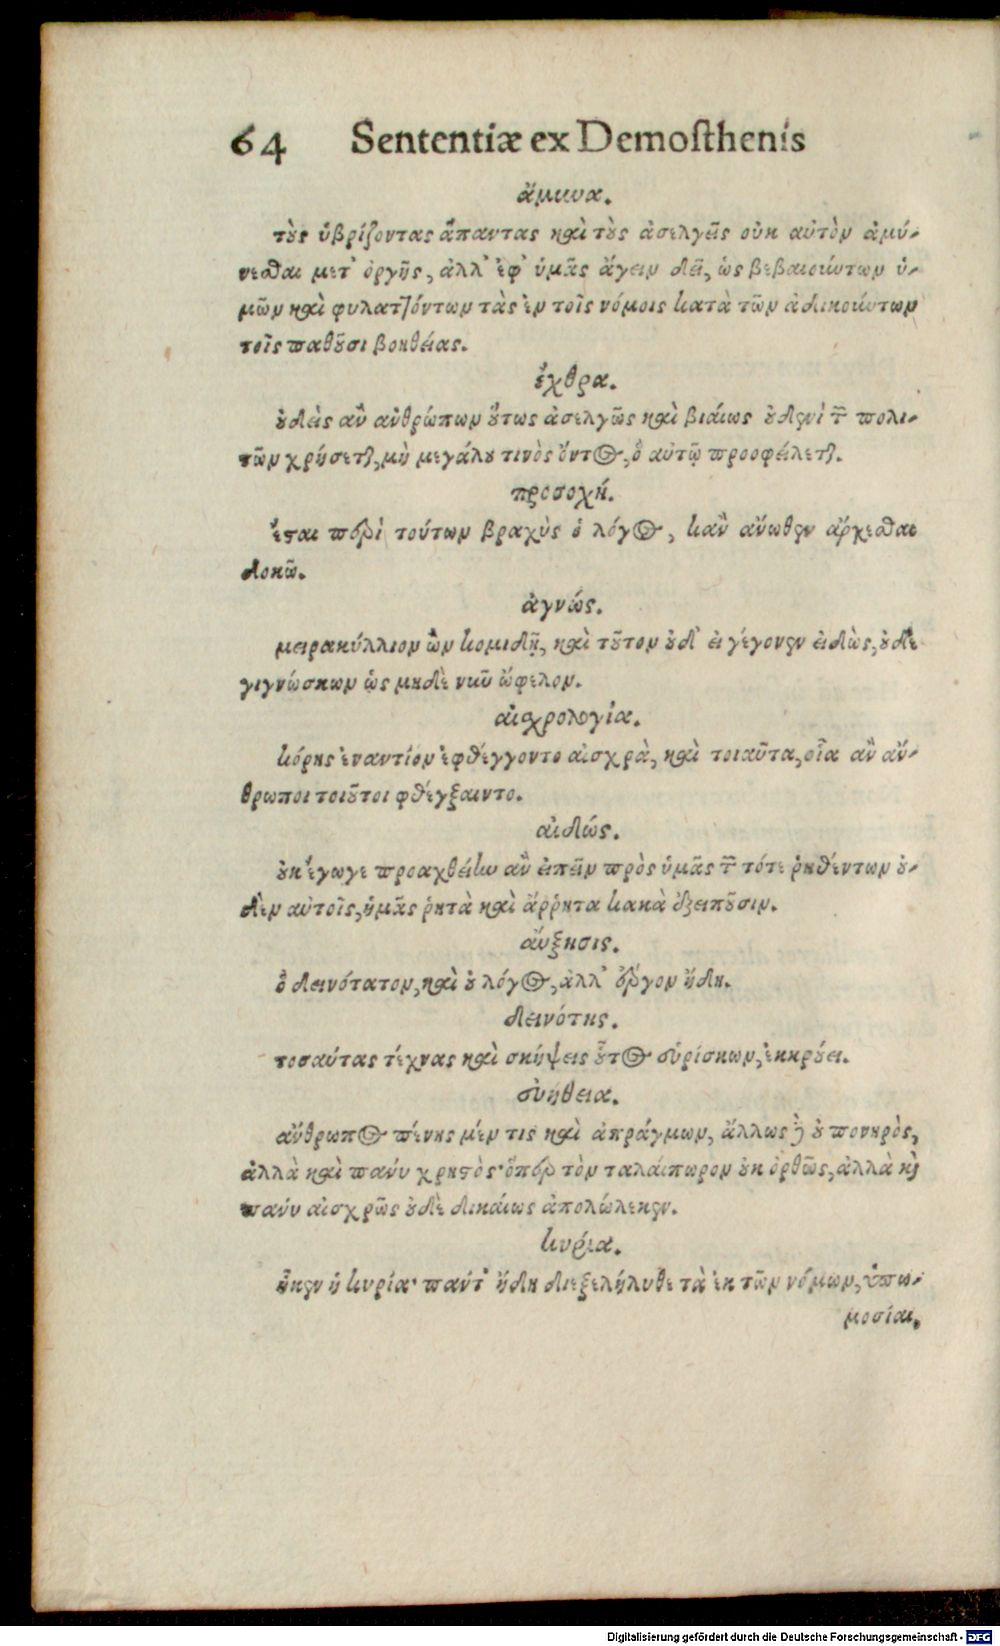 64 Sententiæ ex Demosthenis
ἄμυνα.
τοὺς ὑβρίζοντας ἅπαντας καὶ τοὺς ἀσελγεῖς οὐκ αὐτὸν ἀμύ-
νεσθαι μετ' ὀργῆς, ἀλλ' ἐφ' ὑμᾶς ἄγειν δεῖ, ὡς βεβαιούντων ὑ-
μῶν καὶ φυλαττόντων τὰς ἐν τοῖς νόμοις κατὰ τῶν ἀδικούντων
τοῖς παθοῦσι βοηθείας.
ἔχθρα.
οὐδεὶς ἂν ἀνθρώπων οὕτως ἀσελγῶς καὶ βιαίως οὐδενὶ τῶν πολι-
τῶν χρήσεται, μὴ μεγάλου τινὸς ὄντος, ὃ αὐτῷ προοφείλεται.
προσοχή.
ἔσται περὶ τούτων βραχὺς ὁ λόγος, κἂν ἄνωθεν ἄρχεσθαι
δοκῶ.
ἀγνώς.
μειρακύλλιον ὢν κομιδῇ, καὶ τοῦτον οὐδ' εἰ γέγονεν εἰδὼς, οὐδὲ
γιγνώσκων ὡς μηδὲ νῦν ὤφελον.
αἰσχρολογία.
κόρης ἐναντίον ἐφθέγγοντο αἰσχρὰ, καὶ τοιαῦτα, οἷα ἂν ἄν-
θρωποι τοιοῦτοι φθέγξαιντο.
αἰδώς.
οὐκ ἔγωγε προαχθείην ἂν εἰπεῖν πρὸς ὑμᾶς τῶν τότε ῥηθέντων οὐ-
δὲν αὐτοῖς, ἡμᾶς ῥητὰ καὶ ἄῤῥητα κακὰ ἐξειποῦσιν.
αὔξησις.
ὃ δεινότατον, καὶ οὐ λόγος, ἀλλ' ἔργον ἤδη.
δεινότης.
τοσαύτας τέχνας καὶ σκήψεις οὗτος εὑρίσκων, ἐκκρούει.
συνήθεια.
ἄνθρωπος πένης μέν τις καὶ ἀπράγμων, ἄλλως δ' οὐ πονηρὸς,
ἀλλὰ καὶ πάνυ χρηστὸς· ὅπερ τὸν ταλαίπωρον οὐκ ὀρθῶς, ἀλλὰ καὶ
πάνυ αἰσχρῶς οὐδὲ δικαίως ἀπολώλεκεν.
κυρία.
ἧκεν ἡ κυρία· πάντ' ἤδη διεξελήλυθε τὰ ἐκ τῶν νόμων, ὑπω-
μοσίαι,
Digitalisierung gefördert durch die Deutsche Forschungsgemeinschaft - DFG